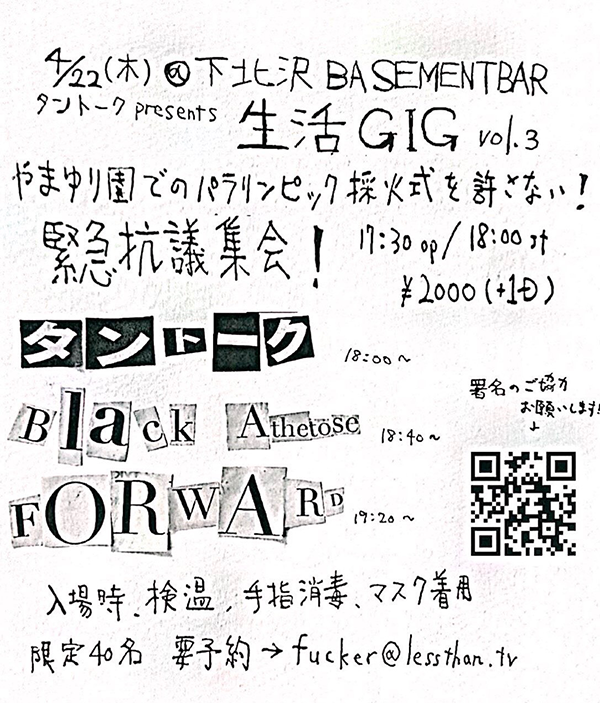 4/22(木) @ 下北沢 BASEMENTBAR
タントーク presents 生活GIG vol.3
やまゆり園でのパラリンピック採火式を許さない!
緊急抗議集会! 17:30 op / 18:00 st
¥2000 (+1D)
タントーク 18:00〜
Black Athetose 18:40〜
FORWARD 19:20〜
署名のご協力
お願いします!
↓
入場時、検温、手指消毒、マスク着用
限定40名 要予約→fucker@lessthan.tv